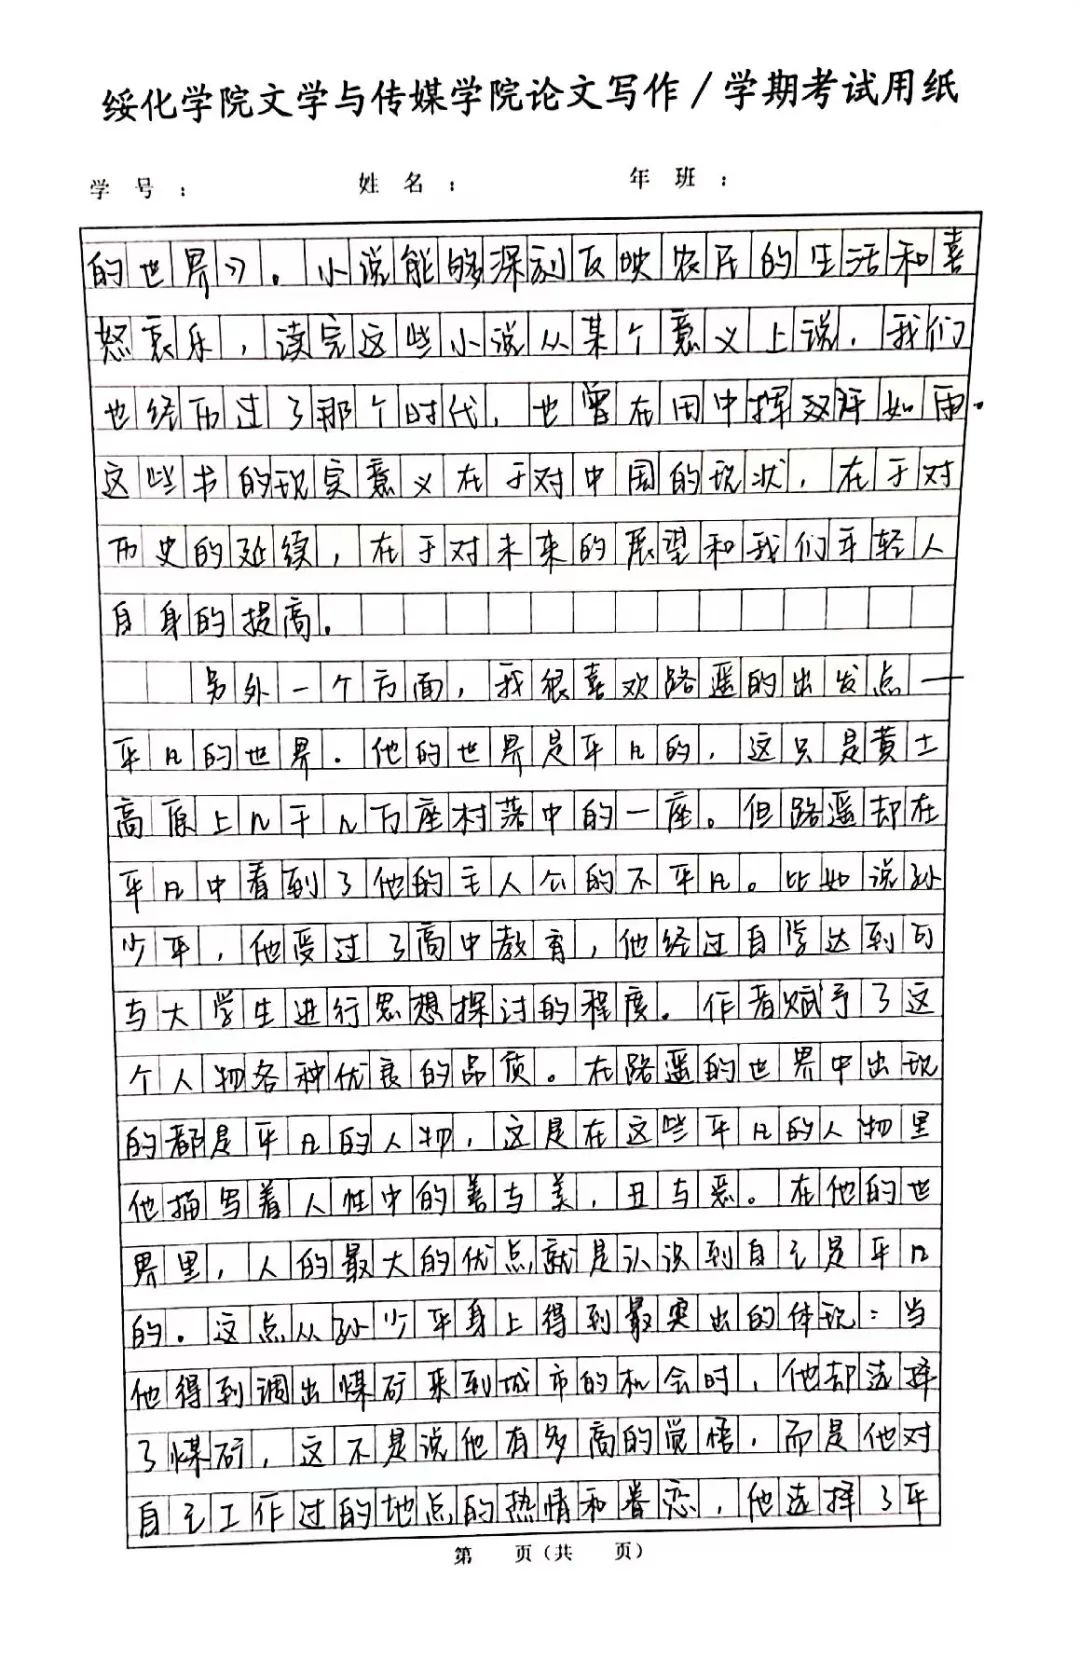 绥化学院文学与传媒学院论文写作/学期考试用纸
学号： 姓名： 年班：
的世界》。小说能够深刻反映农民的生活和喜
怒哀乐，读完这些小说从某个意义上说，我们
也经历过了那个时代，也曾在田中挥汉汗如雨。
这些书的现实意义在于对中国的现状，在于对
历史的延续，在于对未来的展望和我们年轻人
自身的提高。
另外一个方面，我很喜欢路遥的出发点—
平凡的世界。他的世界是平凡的，这只是黄土
高原上几千几万座村落中的一座。但路遥却在
平凡中看到了他的主人公的不平凡。比如说孙
少平，他受过了高中教育，他经过自学达到可
与大学生进行思想探讨的程度。作者赋予了这
个人物各种优良的品质。在路遥的世界中出现
的都是平凡的人物，这是在这些平凡的人物里
他描写着人性中的善与美，丑与恶。在他的世
界里，人的最大的优点就是认识到自己是平凡
的。这点从孙少平身上得到最突出的体现：当
他得到调出煤矿来到城市的机会时，他却选择
了煤矿，这不是说他有多高的觉悟，而是他对
自己工作过的地点的热情和眷恋，他选择了平
第 页（共 页）